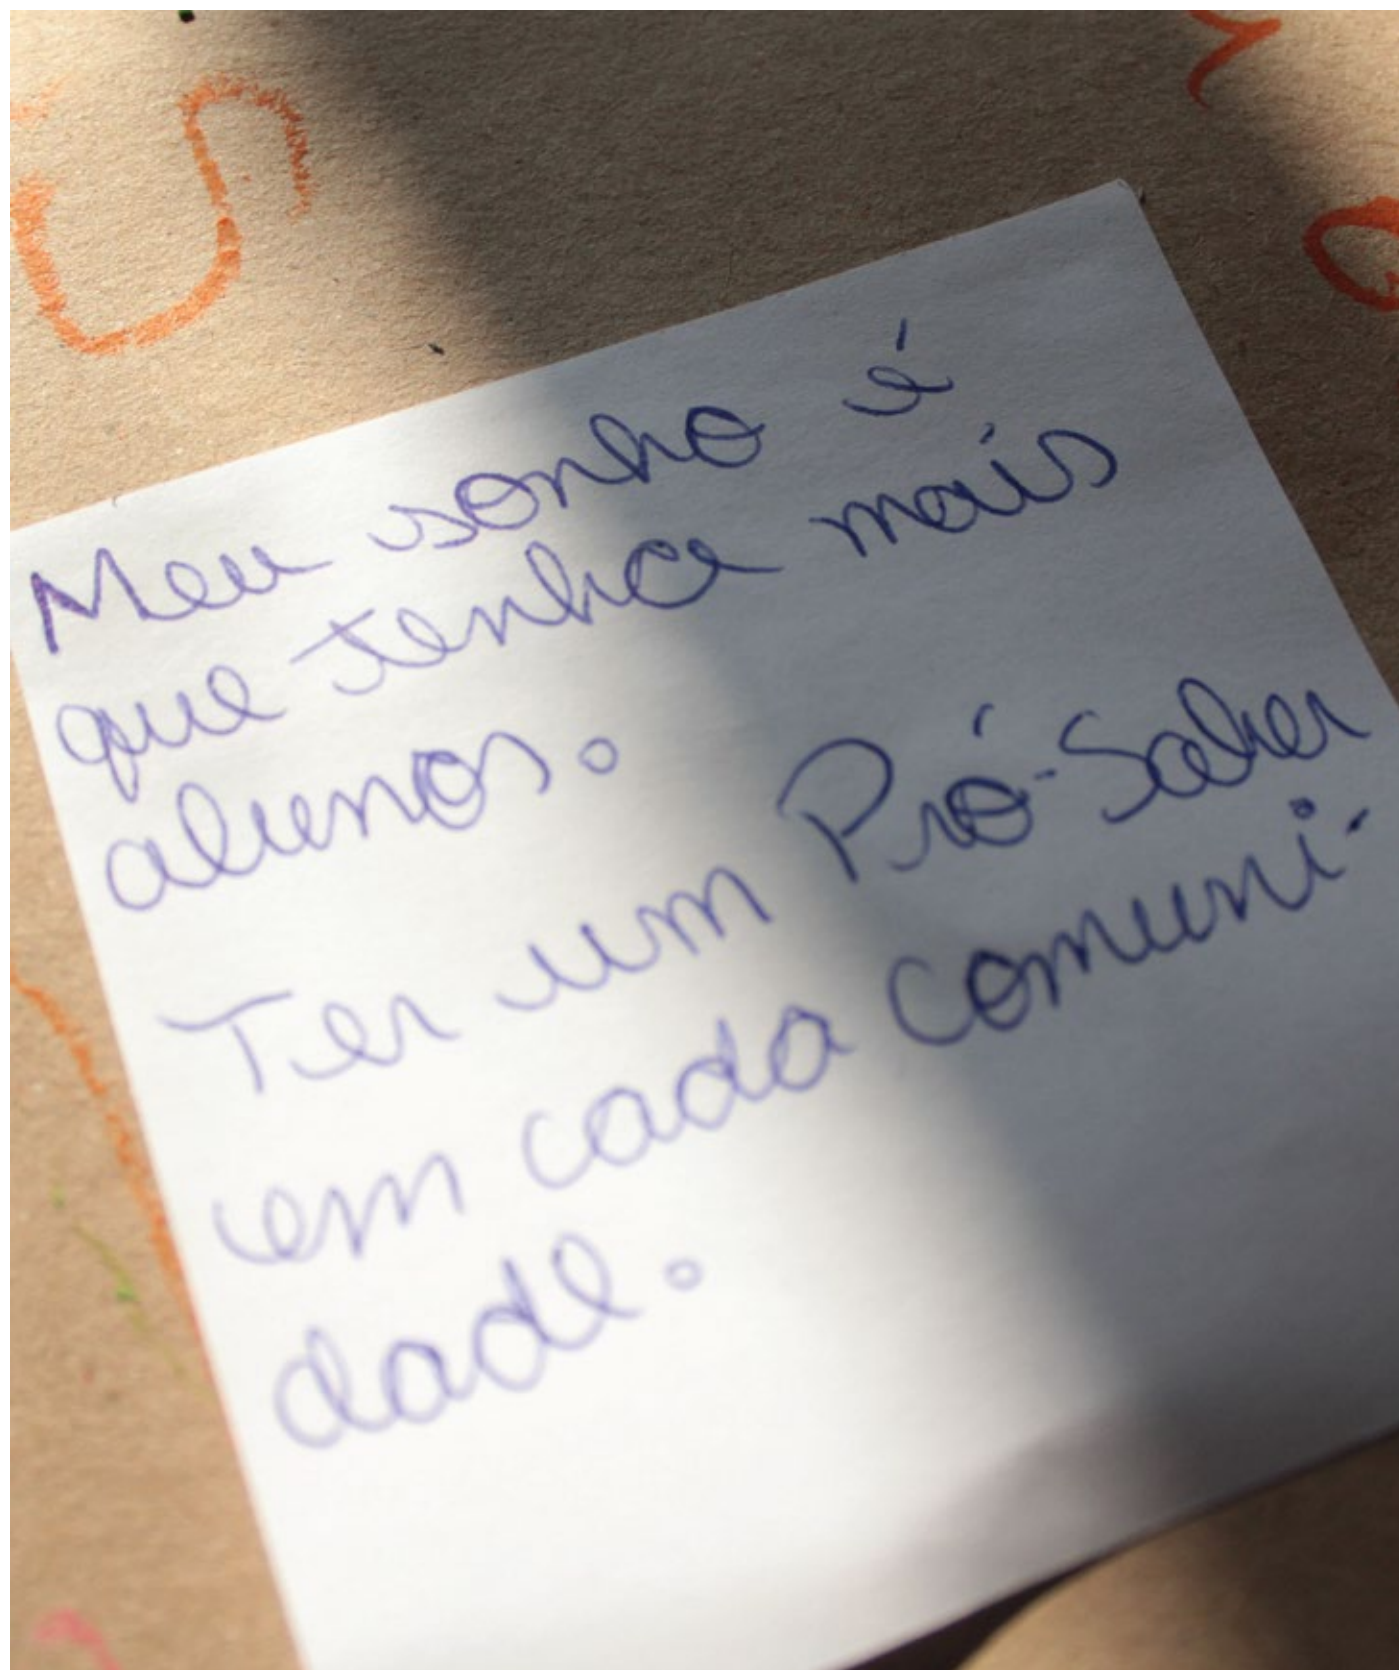 Meu sonho é
que tenha mais
alunos.
Ter um Pró-Saber
em cada comuni-
dade.